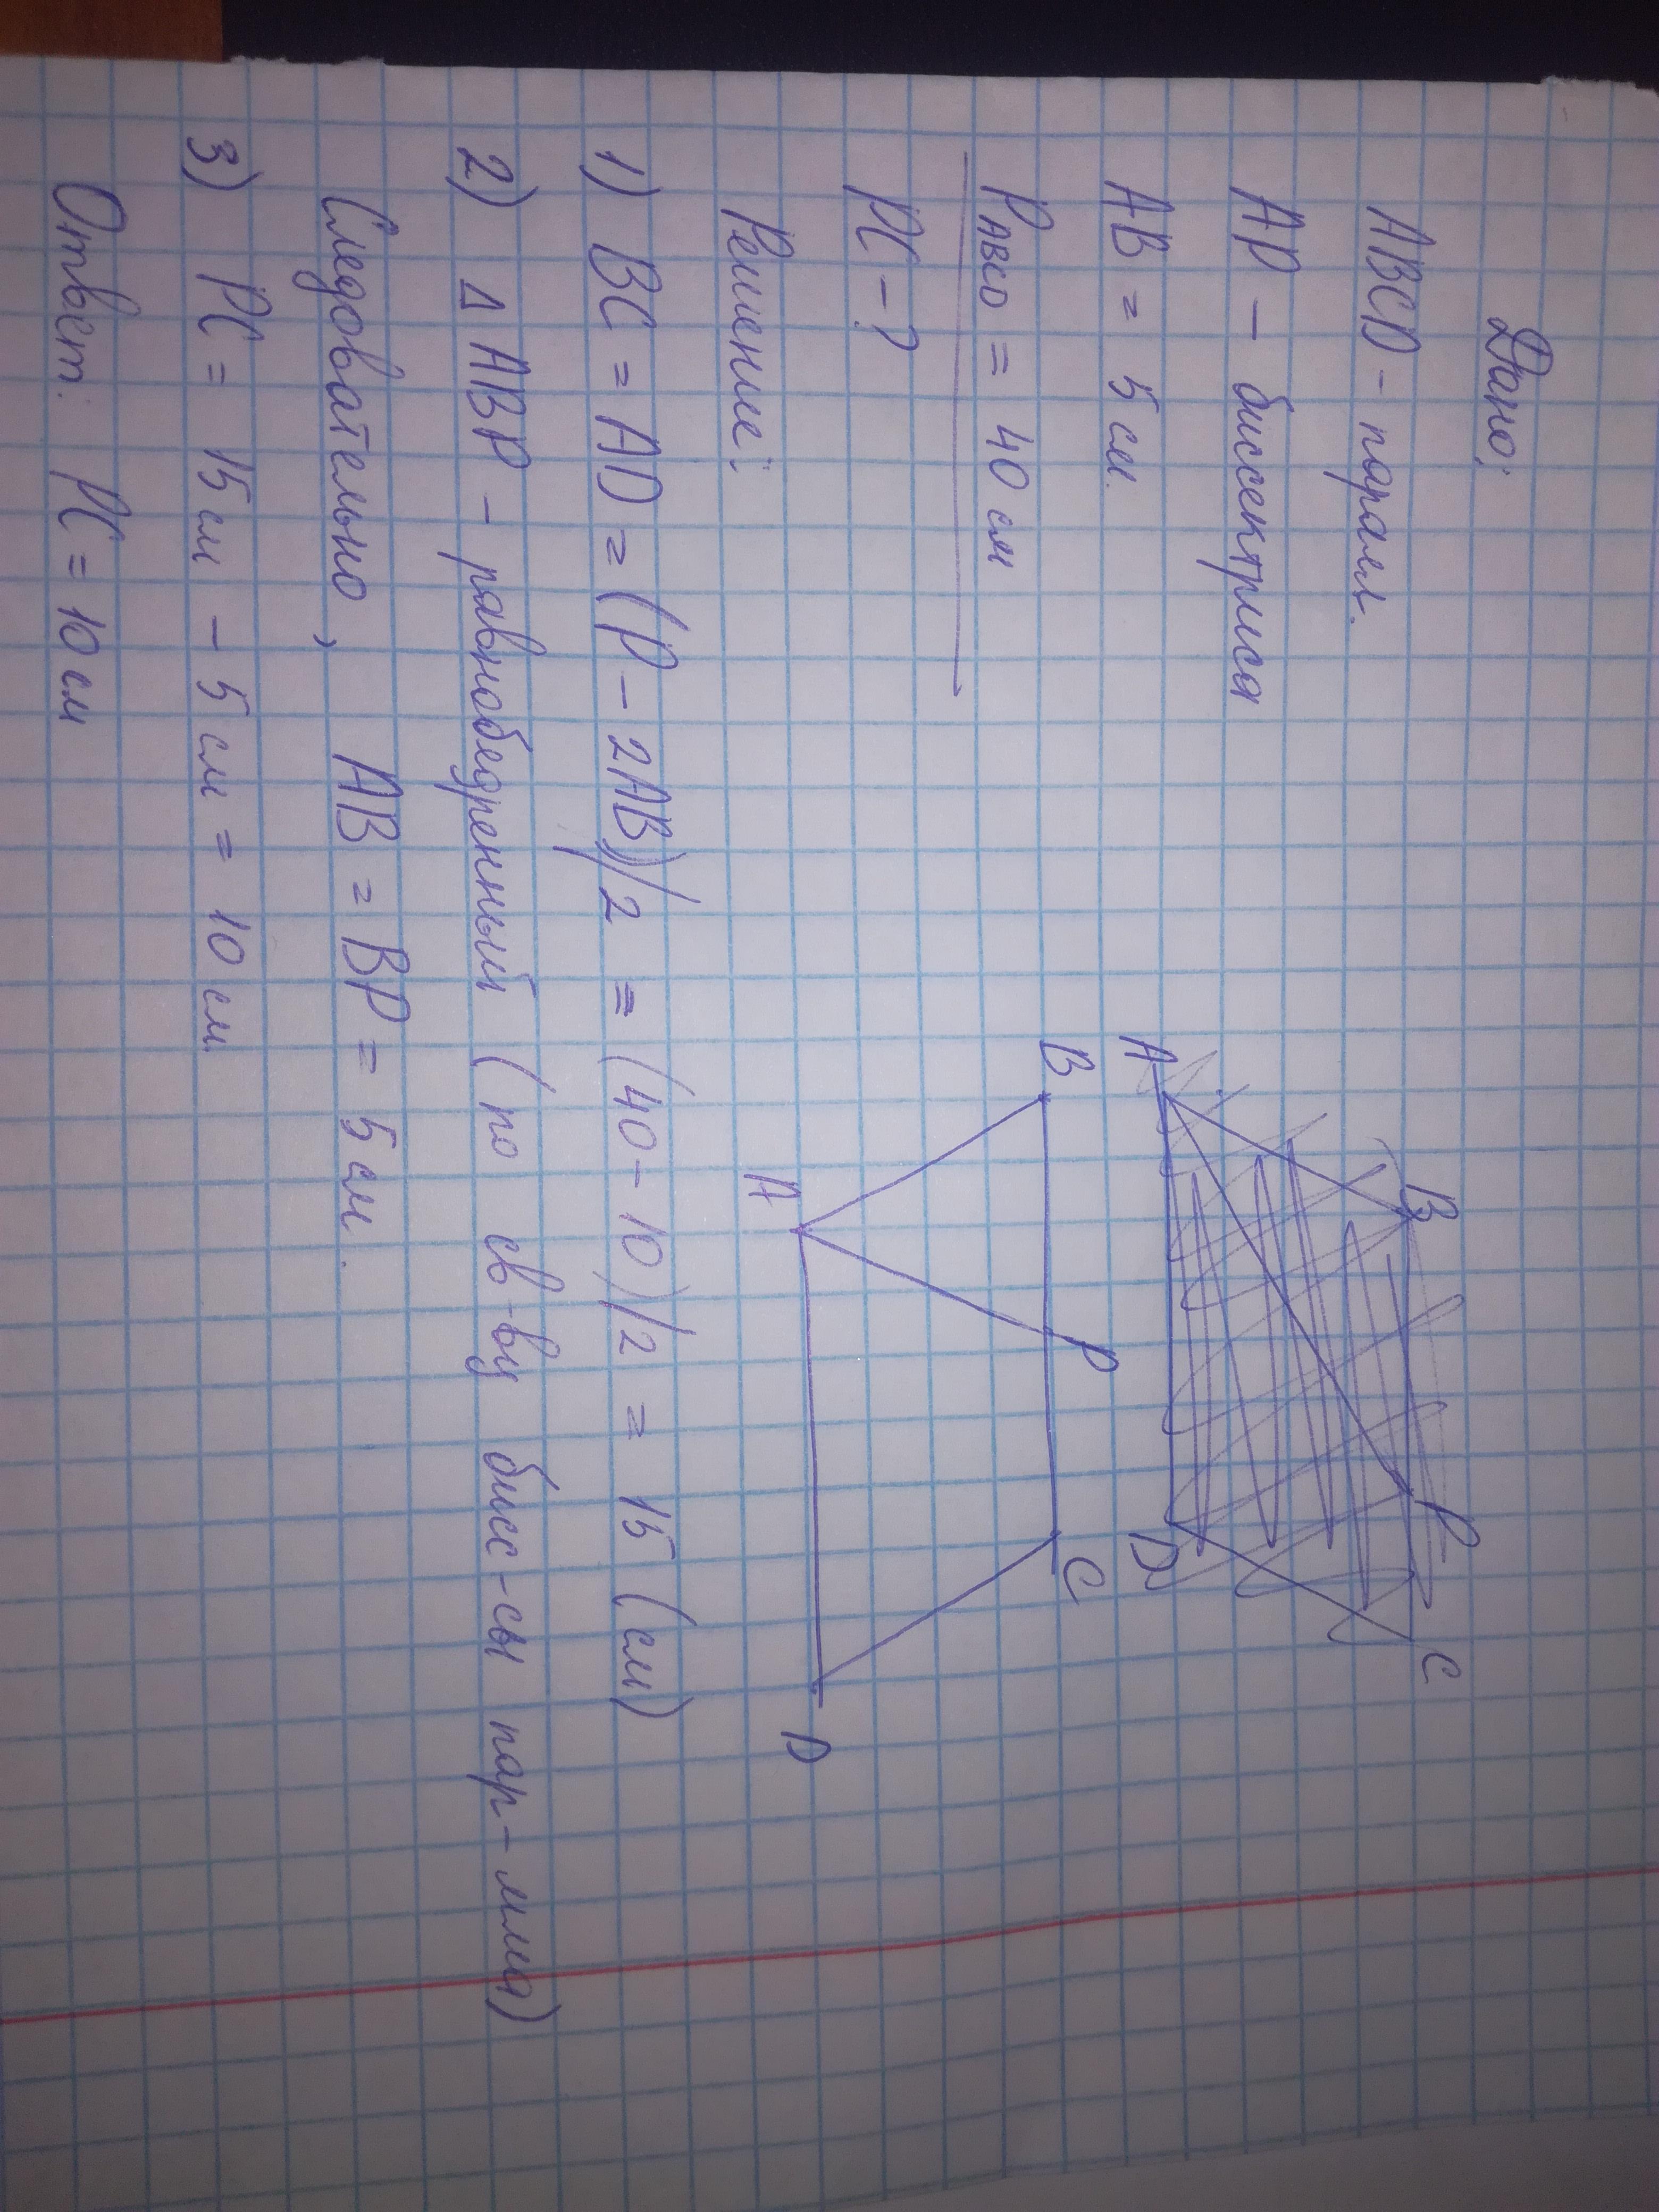 Дано:
ABCD - парал.
AP - биссектриса
AB = 5 см.
PABCD = 40 см
PC - ?
A B P C D
B P C A D
Решение:
1) BC = AD = (P - 2AB)/2 = (40 - 10)/2 = 15 (см)
2) Δ ABP - равнобедренный (по св-ву бисс-сы пар-мма)
Следовательно, AB = BP = 5 см.
3) PC = 15 см - 5 см = 10 см.
Ответ: PC = 10 см